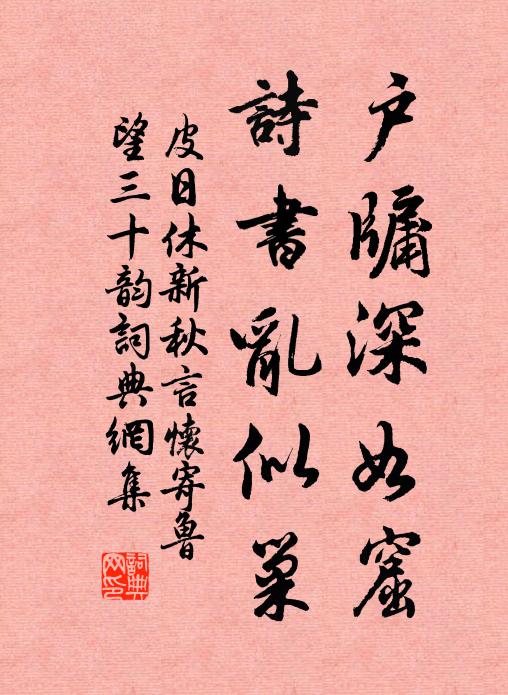 户牖深如窟
詩書亂似巢
皮日休新秋言懷寄魯
望三十韵詞典網集
詞典
网印